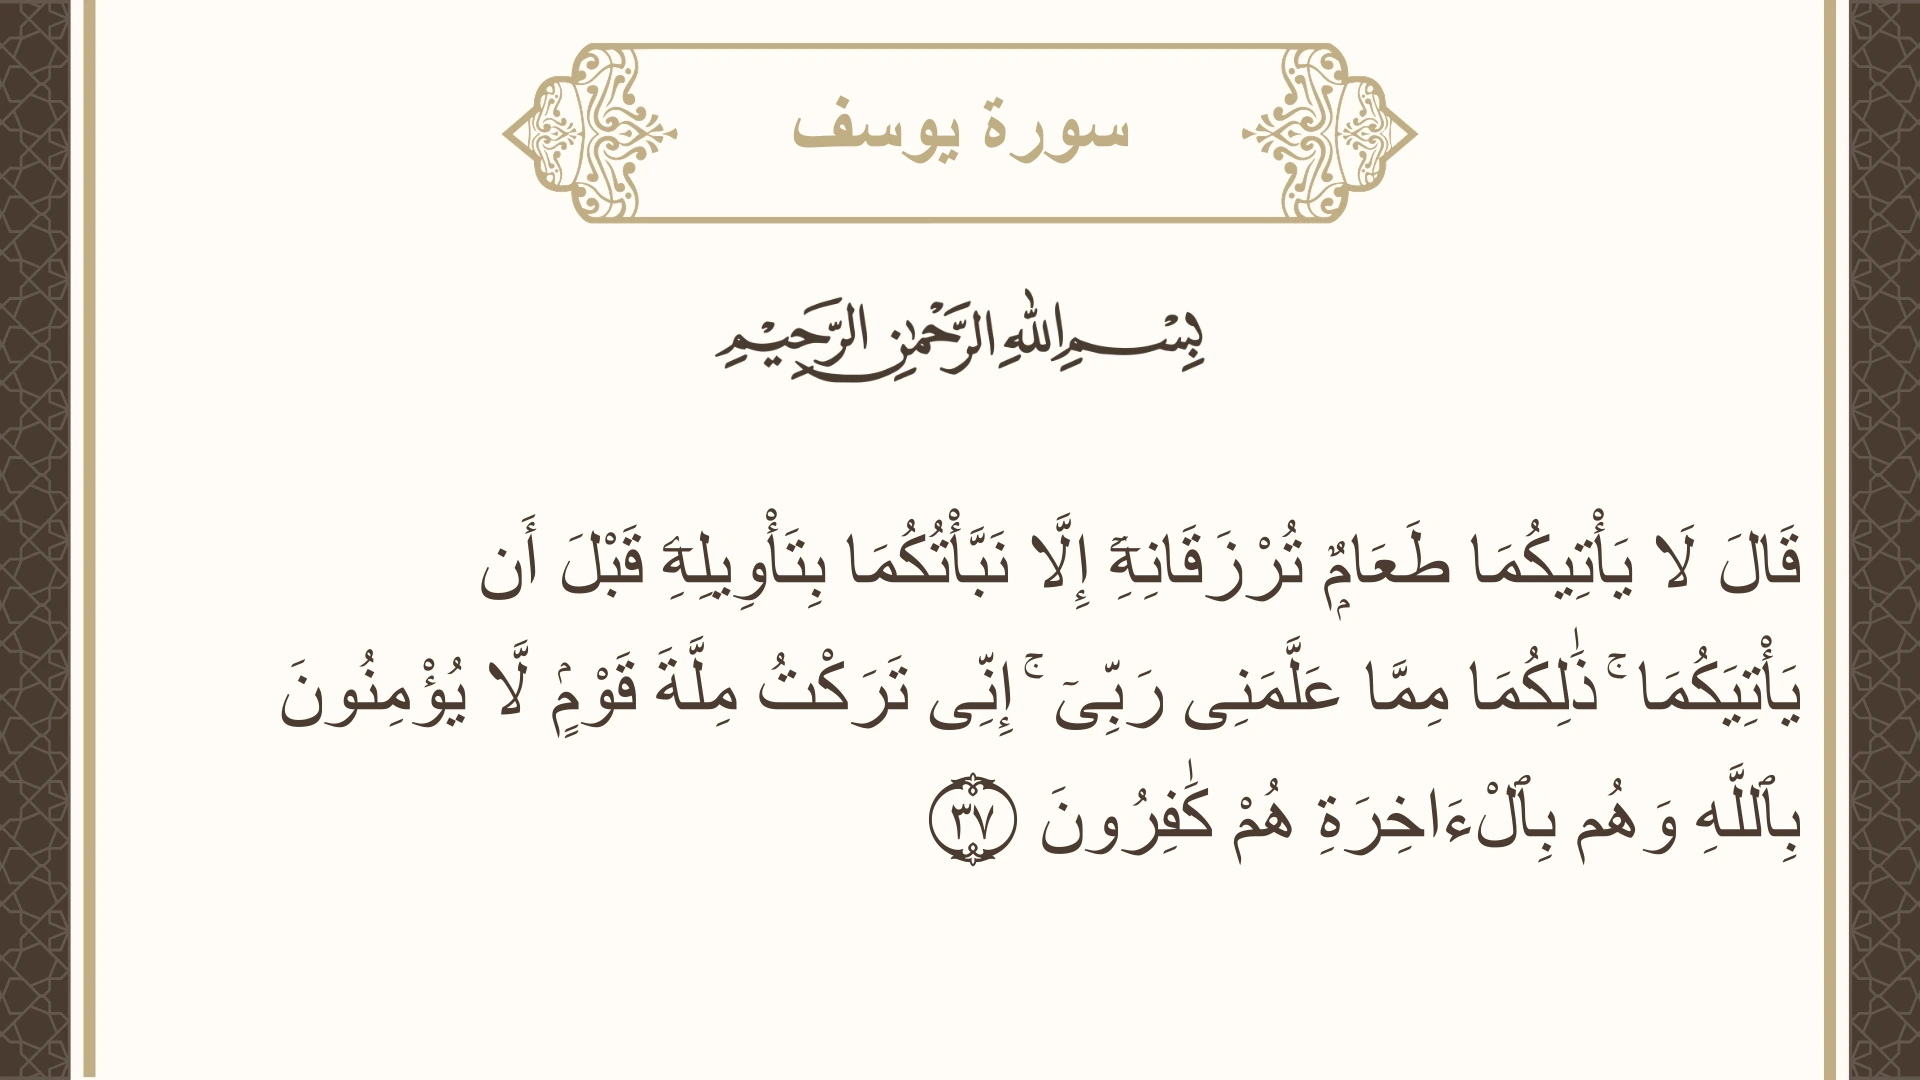 سورة يوسف
بِسْمِ اللهِ الرَّحْمٰنِ الرَّحِيْمِ
قَالَ لَا يَأْتِيكُمَا طَعَامٌۭ تُرْزَقَانِهِۦٓ إِلَّا نَبَّأْتُكُمَا بِتَأْوِيلِهِۦ قَبْلَ أَن
يَأْتِيَكُمَا ۚ ذَٰلِكُمَا مِمَّا عَلَّمَنِى رَبِّىٓ ۚ إِنِّى تَرَكْتُ مِلَّةَ قَوْمٍۢ لَّا يُؤْمِنُونَ
بِٱللَّهِ وَهُم بِٱلْءَاخِرَةِ هُمْ كَٰفِرُونَ ٣٧